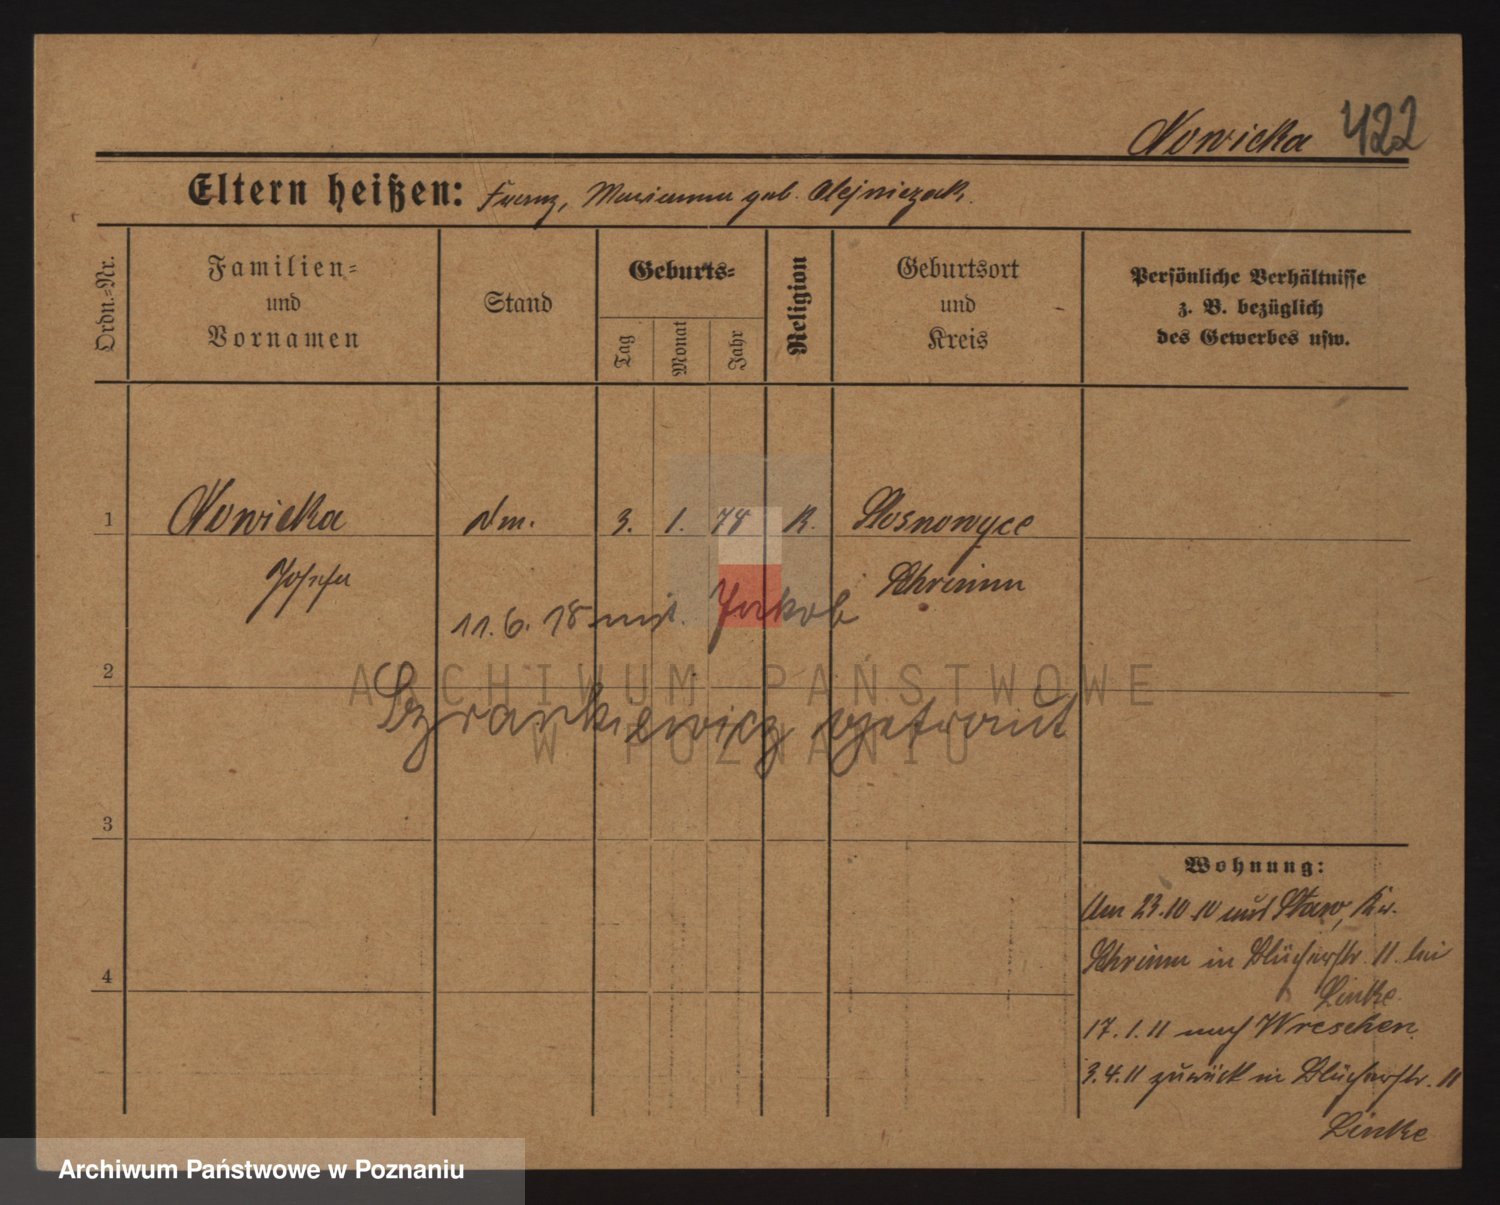 Nowicka 422
Eltern heißen: Franz, Marianna geb. Olejniczak.
Ordn.=Nr.
Familien=
und
Vornamen
Stand
Geburts=
Tag
Monat
Jahr
Religion
Geburtsort
und
Kreis
Persönliche Verhältnisse
z. B. bezüglich
des Gewerbes usw.
1 Nowicka 3. 1. 78 K.
Josefa Schrimm
11.6.18 mit Jakob
2
Szrankiewicz getraut
3
Wohnung:
Am 23.10.10 aus Kr.
4
Schrimm in Blücherstr. 11. bei
Linke.
17.1.11 nach Wreschen
3.4.11 zurück in Blücherstr. 11
Linke
ARCHIWUM PAŃSTWOWE
W POZNANIU
Archiwum Państwowe w Poznaniu